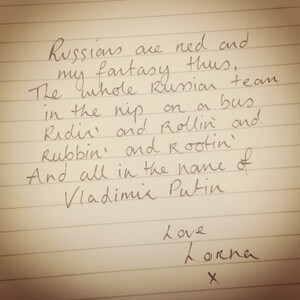 Russians are red and
my fantasy thus,
The whole Russian team
in the nip on a bus
Ridin' and Rollin' and
Rubbin' and Rootin'
And all in the name of
Vladimir Putin
Love
Lorna
x